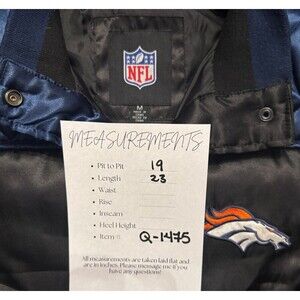 NFL
M
MEASUREMENTS
• Pit to Pit 19
• Length 23
• Waist
• Rise
• Inseam
• Heel Height
• Item # Q-1475
All measurements are taken laid flat and
are in inches. Please message me if you
have any questions!